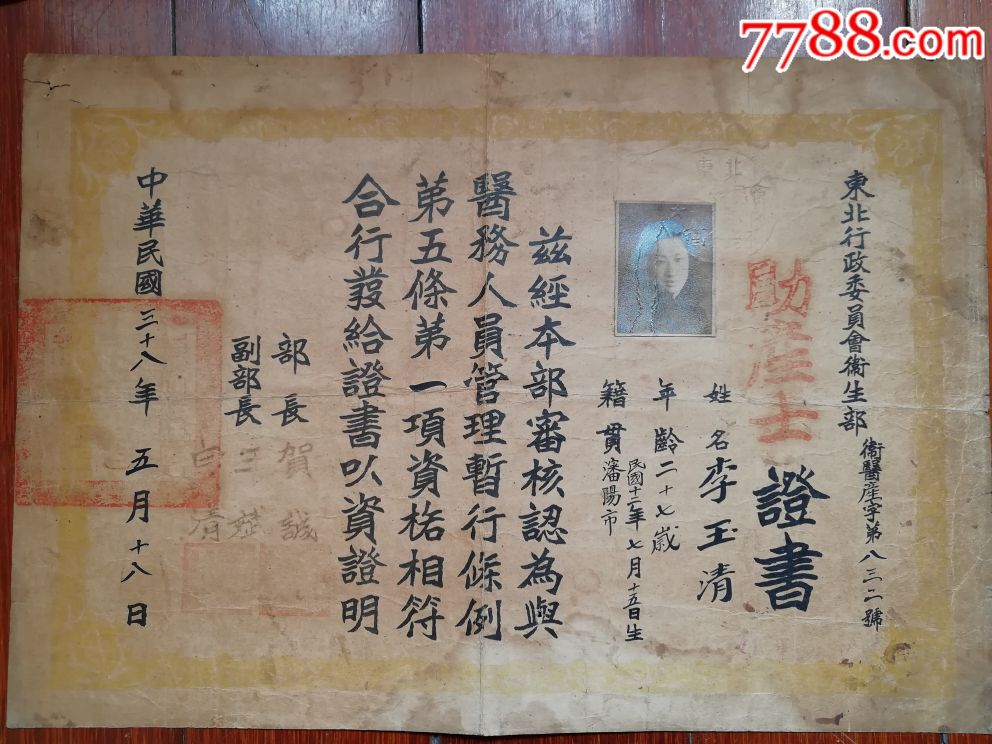 7788.com
東北行政委員會衛生部
衛醫產字第八三二號
助產士
證書
姓名李玉清
年齡二十七歲
民國十二年七月十五日生
籍貫瀋陽市
茲經本部審核認為與
醫務人員管理暫行條例
第五條第一項資格相符
合行發給證書以資證明
部長賀誠
副部長
中華民國三十八年五月十八日